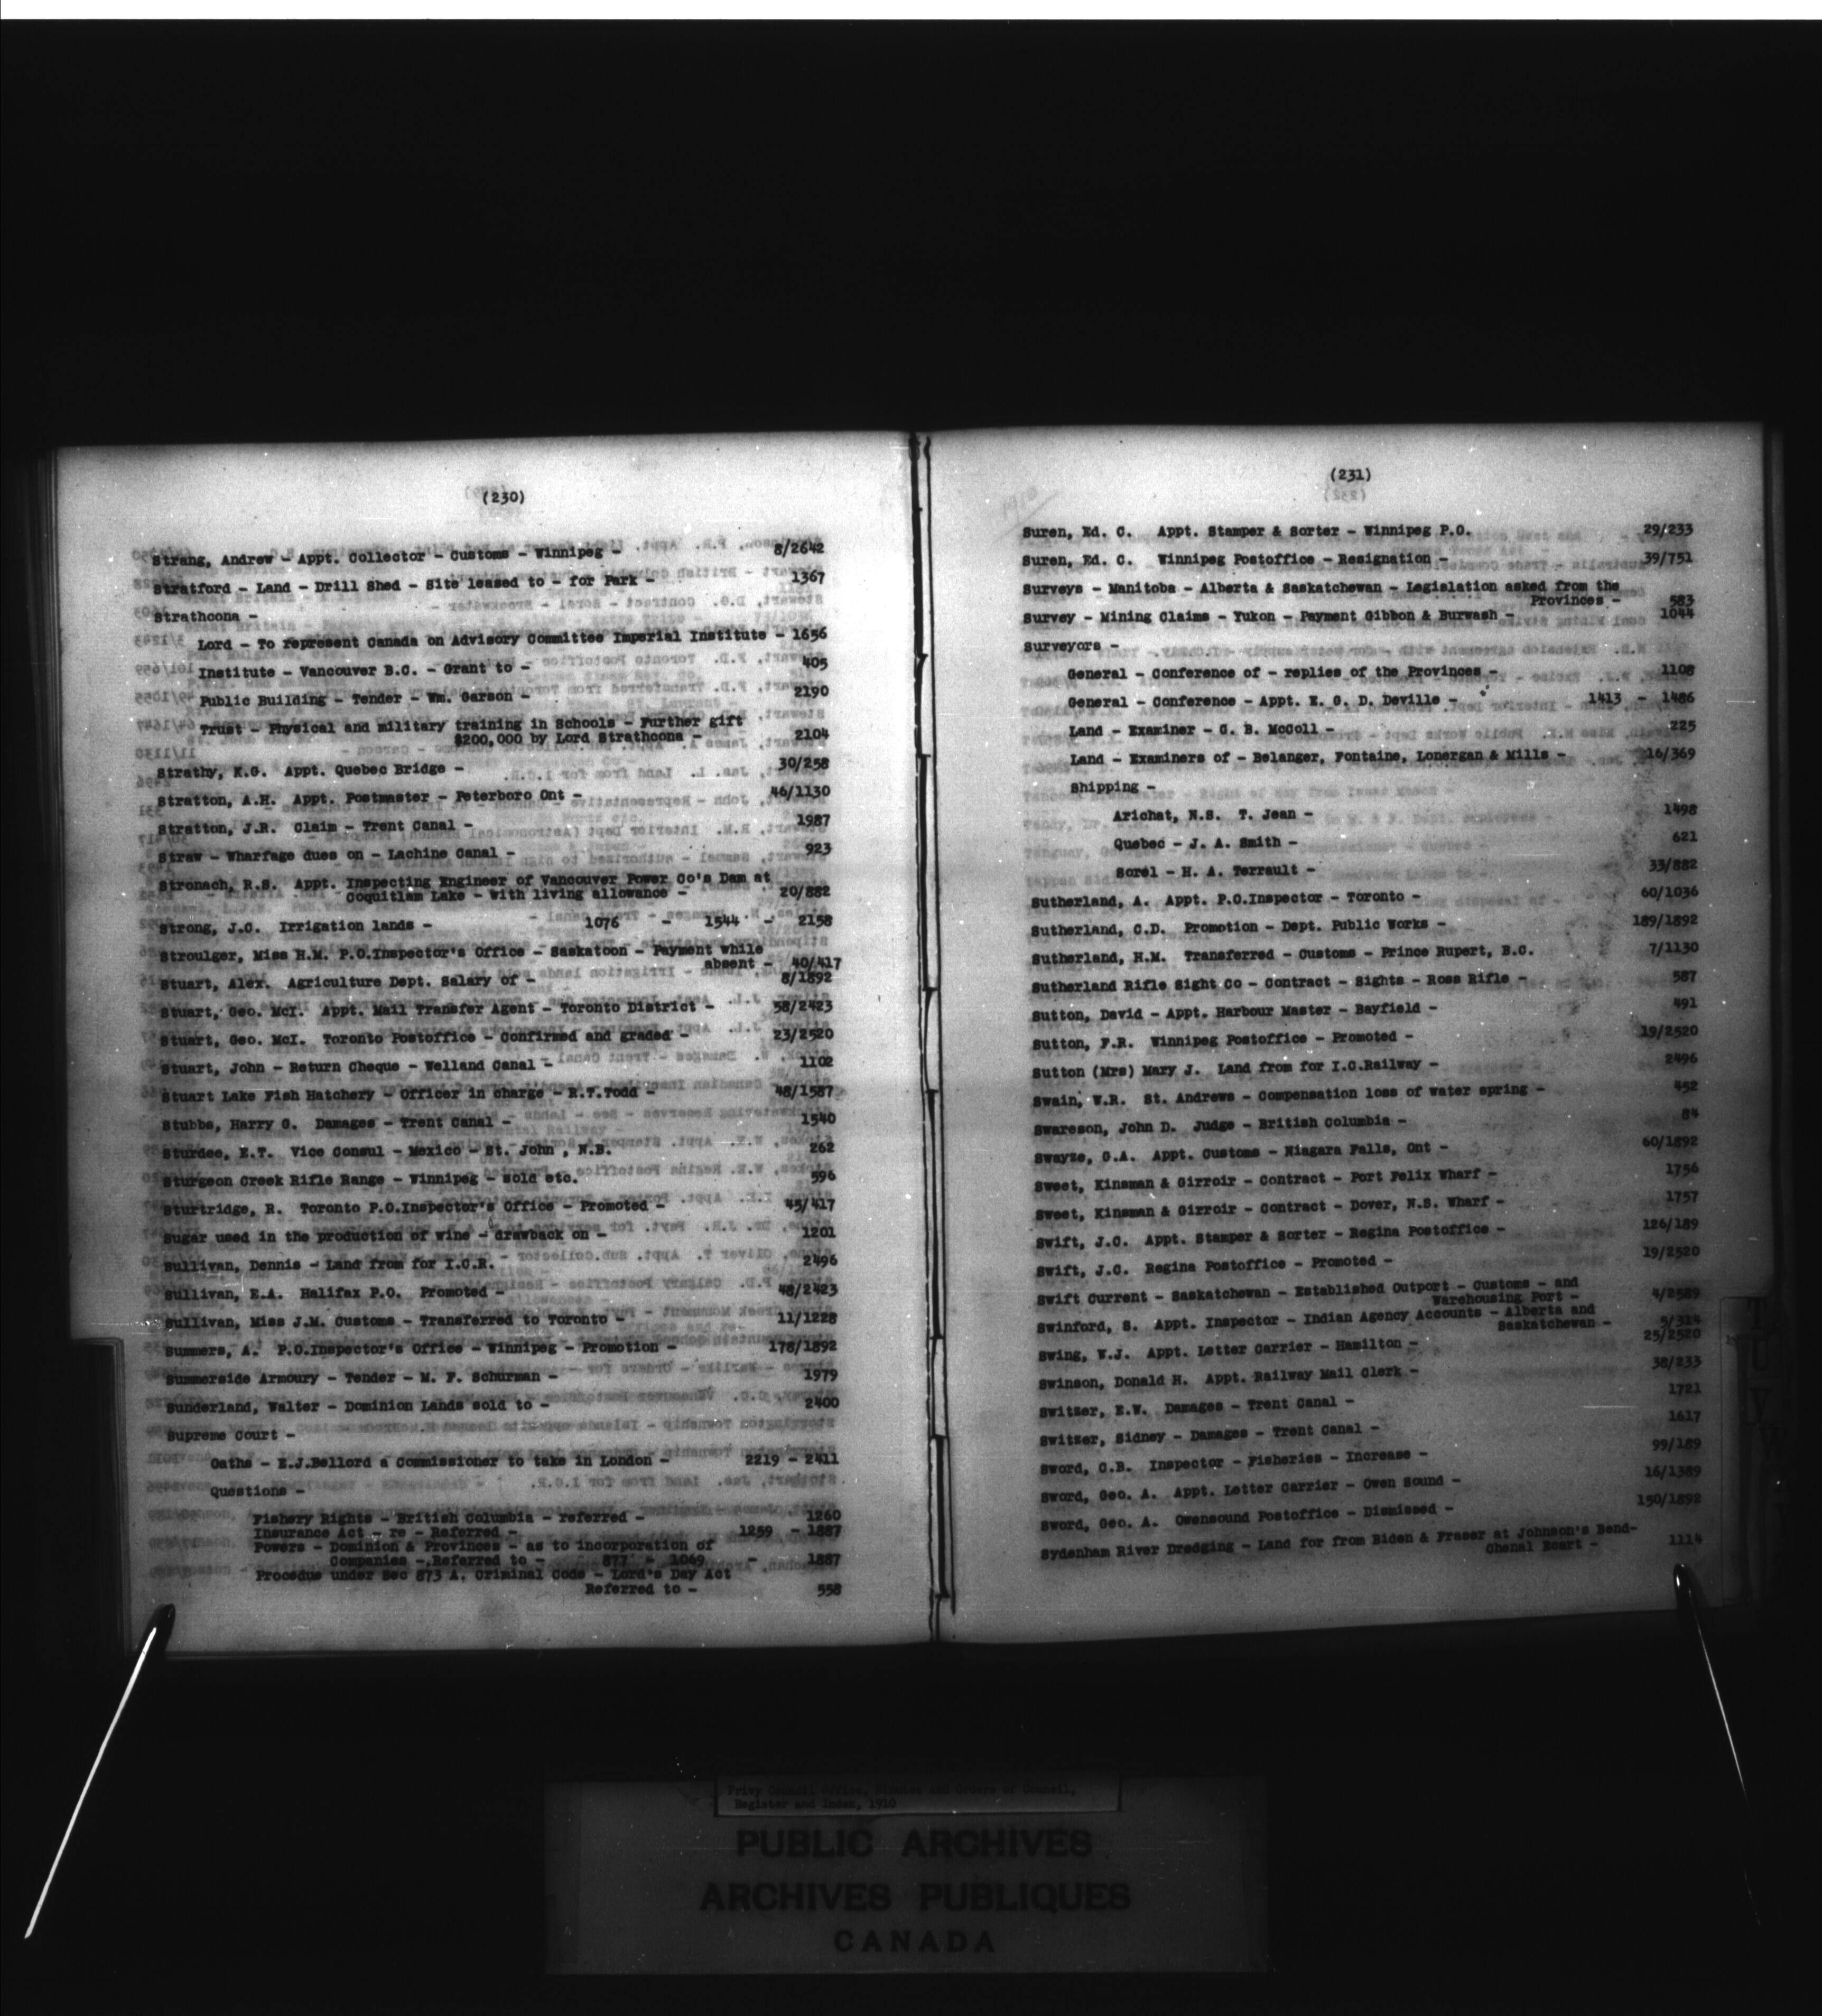 (230)
Strang, Andrew - Appt. Collector - Customs - Winnipeg - 8/2642
Stratford - Land - Drill Shed - Site leased to - for Park - 1367
Strathcona -
Lord - To represent Canada on Advisory Committee Imperial Institute - 1656
Institute - Vancouver B.C. - Grant to - 405
Public Building - Tender - Wm. Garson - 2190
Trust - Physical and military training in Schools - Further gift
$200,000 by Lord Strathcona - 2104
Strathy, K.G. Appt. Quebec Bridge - 30/258
Stratton, A.H. Appt. Postmaster - Peterboro Ont - 46/1130
Stratton, J.R. Claim - Trent Canal - 1987
Straw - Wharfage dues on - Lachine Canal - 923
Stronach, R.S. Appt. Inspecting Engineer of Vancouver Power Co's Dam at
Coquitlam Lake - with living allowance - 20/882
Strong, J.C. Irrigation lands - 1076 - 1544 - 2158
Stroulger, Miss H.M. P.O.Inspector's Office - Saskatoon - Payment while
absent - 40/417
Stuart, Alex. Agriculture Dept. Salary of - 8/1892
Stuart, Geo. McI. Appt. Mail Transfer Agent - Toronto District - 58/2423
Stuart, Geo. McI. Toronto Postoffice - Confirmed and graded - 23/2520
Stuart, John - Return Cheque - Welland Canal - 1102
Stuart Lake Fish Hatchery - Officer in charge - R.T.Todd - 48/1587
Stubbs, Harry G. Damages - Trent Canal - 1540
Sturdee, E.T. Vice Consul - Mexico - St. John , N.B. 262
Sturgeon Creek Rifle Range - Winnipeg - sold etc. 596
Sturtridge, R. Toronto P.O.Inspector's Office - Promoted - 45/417
Sugar used in the production of wine - drawback on - 1201
Sullivan, Dennis - Land from for I.C.R. 2496
Sullivan, E.A. Halifax P.O. Promoted - 48/2423
Sullivan, Miss J.M. Customs - Transferred to Toronto - 11/1228
Summers, A. P.O.Inspector's Office - Winnipeg - Promotion - 178/1892
Summerside Armoury - Tender - M. F. Schurman - 1979
Sunderland, Walter - Dominion Lands sold to - 2400
Supreme Court -
Oaths - E.J.Bellord a Commissioner to take in London - 2219 - 2411
Questions -
Fishery Rights - British Columbia - referred - 1260
Insurance Act - re - Referred - 1259 - 1887
Powers - Dominion & Provinces - as to incorporation of
Companies - Referred to - 877 - 1069 - 1887
Procedue under Sec 873 A. Criminal Code - Lord's Day Act
Referred to - 558
(231)
1910
Suren, Ed. C. Appt. Stamper & Sorter - Winnipeg P.O. 29/233
Suren, Ed. C. Winnipeg Postoffice - Resignation - 39/751
Surveys - Manitoba - Alberta & Saskatchewan - Legislation asked from the
Provinces - 583
Survey - Mining Claims - Yukon - Payment Gibbon & Burwash - 1044
Surveyors -
General - Conference of - replies of the Provinces - 1108
General - Conference - Appt. E. G. D. Deville - 1413 - 1486
Land - Examiner - G. B. McColl - 225
Land - Examiners of - Belanger, Fontaine, Lonergan & Mills - 16/369
Shipping -
Arichat, N.S. T. Jean - 1498
Quebec - J. A. Smith - 621
Sorel - H. A. Terrault - 33/882
Sutherland, A. Appt. P.O.Inspector - Toronto - 60/1036
Sutherland, C.D. Promotion - Dept. Public Works - 189/1892
Sutherland, H.M. Transferred - Customs - Prince Rupert, B.C. 7/1130
Sutherland Rifle Sight Co - Contract - Sights - Ross Rifle - 587
Sutton, David - Appt. Harbour Master - Bayfield - 491
Sutton, F.R. Winnipeg Postoffice - Promoted - 19/2520
Sutton (Mrs) Mary J. Land from for I.C.Railway - 2496
Swain, W.R. St. Andrews - Compensation loss of water spring - 452
Swareson, John D. Judge - British Columbia - 84
Swayze, G.A. Appt. Customs - Niagara Falls, Ont - 60/1892
Sweet, Kinsman & Girroir - Contract - Port Felix Wharf - 1756
Sweet, Kinsman & Girroir - Contract - Dover, N.S. Wharf - 1757
Swift, J.C. Appt. Stamper & Sorter - Regina Postoffice - 126/189
Swift, J.C. Regina Postoffice - Promoted - 19/2520
Swift Current - Saskatchewan - Established Outport - Customs - and
Warehousing Port - 4/2589
Swinford, S. Appt. Inspector - Indian Agency Accounts - Alberta and
Saskatchewan - 5/314
Swing, W.J. Appt. Letter Carrier - Hamilton - 25/2520
Swinson, Donald H. Appt. Railway Mail Clerk - 38/233
Switzer, E.W. Damages - Trent Canal - 1721
Switzer, Sidney - Damages - Trent Canal - 1617
Sword, C.B. Inspector - Fisheries - Increase - 99/189
Sword, Geo. A. Appt. Letter Carrier - Owen Sound - 16/1389
Sword, Geo. A. Owensound Postoffice - Dismissed - 150/1892
Sydenham River Dredging - Land for from Biden & Fraser at Johnson's Bend-
Chenal Ecart - 1114
Privy Council Office, Minutes and Orders of Council,
Register and Index, 1910
PUBLIC ARCHIVES
ARCHIVES PUBLIQUES
CANADA